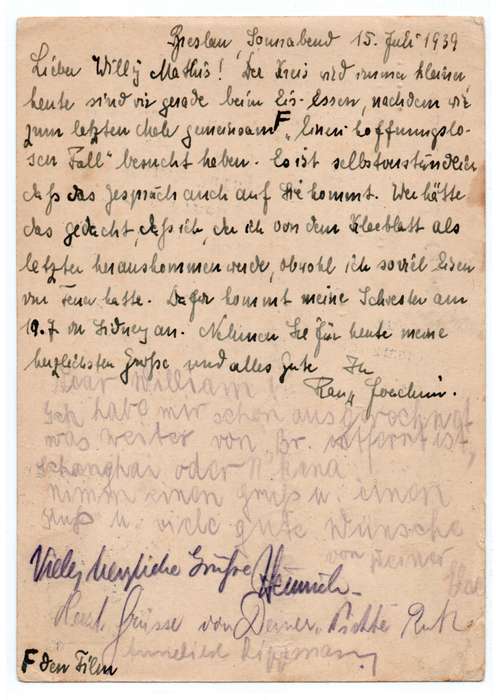 Breslau, Sonnabend 15. Juli 1939
Lieber Willy Mathis! Der Kreis wird immer kleiner,
heute sind wir gerade beim Eis-Essen, nachdem wir
zum letzten Male gemeinsam F „Einen hoffnungslo-
sen Fall“ besucht haben. Es ist selbstverständlich
daß das Gespräch auch auf Sie kommt. Wer hätte
das gedacht, daß ich, der ich von dem Kleeblatt als
letzter herauskommen werde, obwohl ich soviel Eisen
im Feuer hatte. Dafür kommt meine Schwester am
19.7 in Sidney an. Nehmen Sie für heute meine
herzlichsten Grüße und alles Gute Ihr
Joachim.
William!
Ich habe mir schon ausgerechnet
was weiter von Br. entfernt ist,
Schanghai oder
nimm einen Gruß u. einen
Kuß u. viele gute Wünsche
von Deiner
Viele herzliche Grüße Heinrich
Herzl. Grüsse von Deiner
Anneliese
F den Film